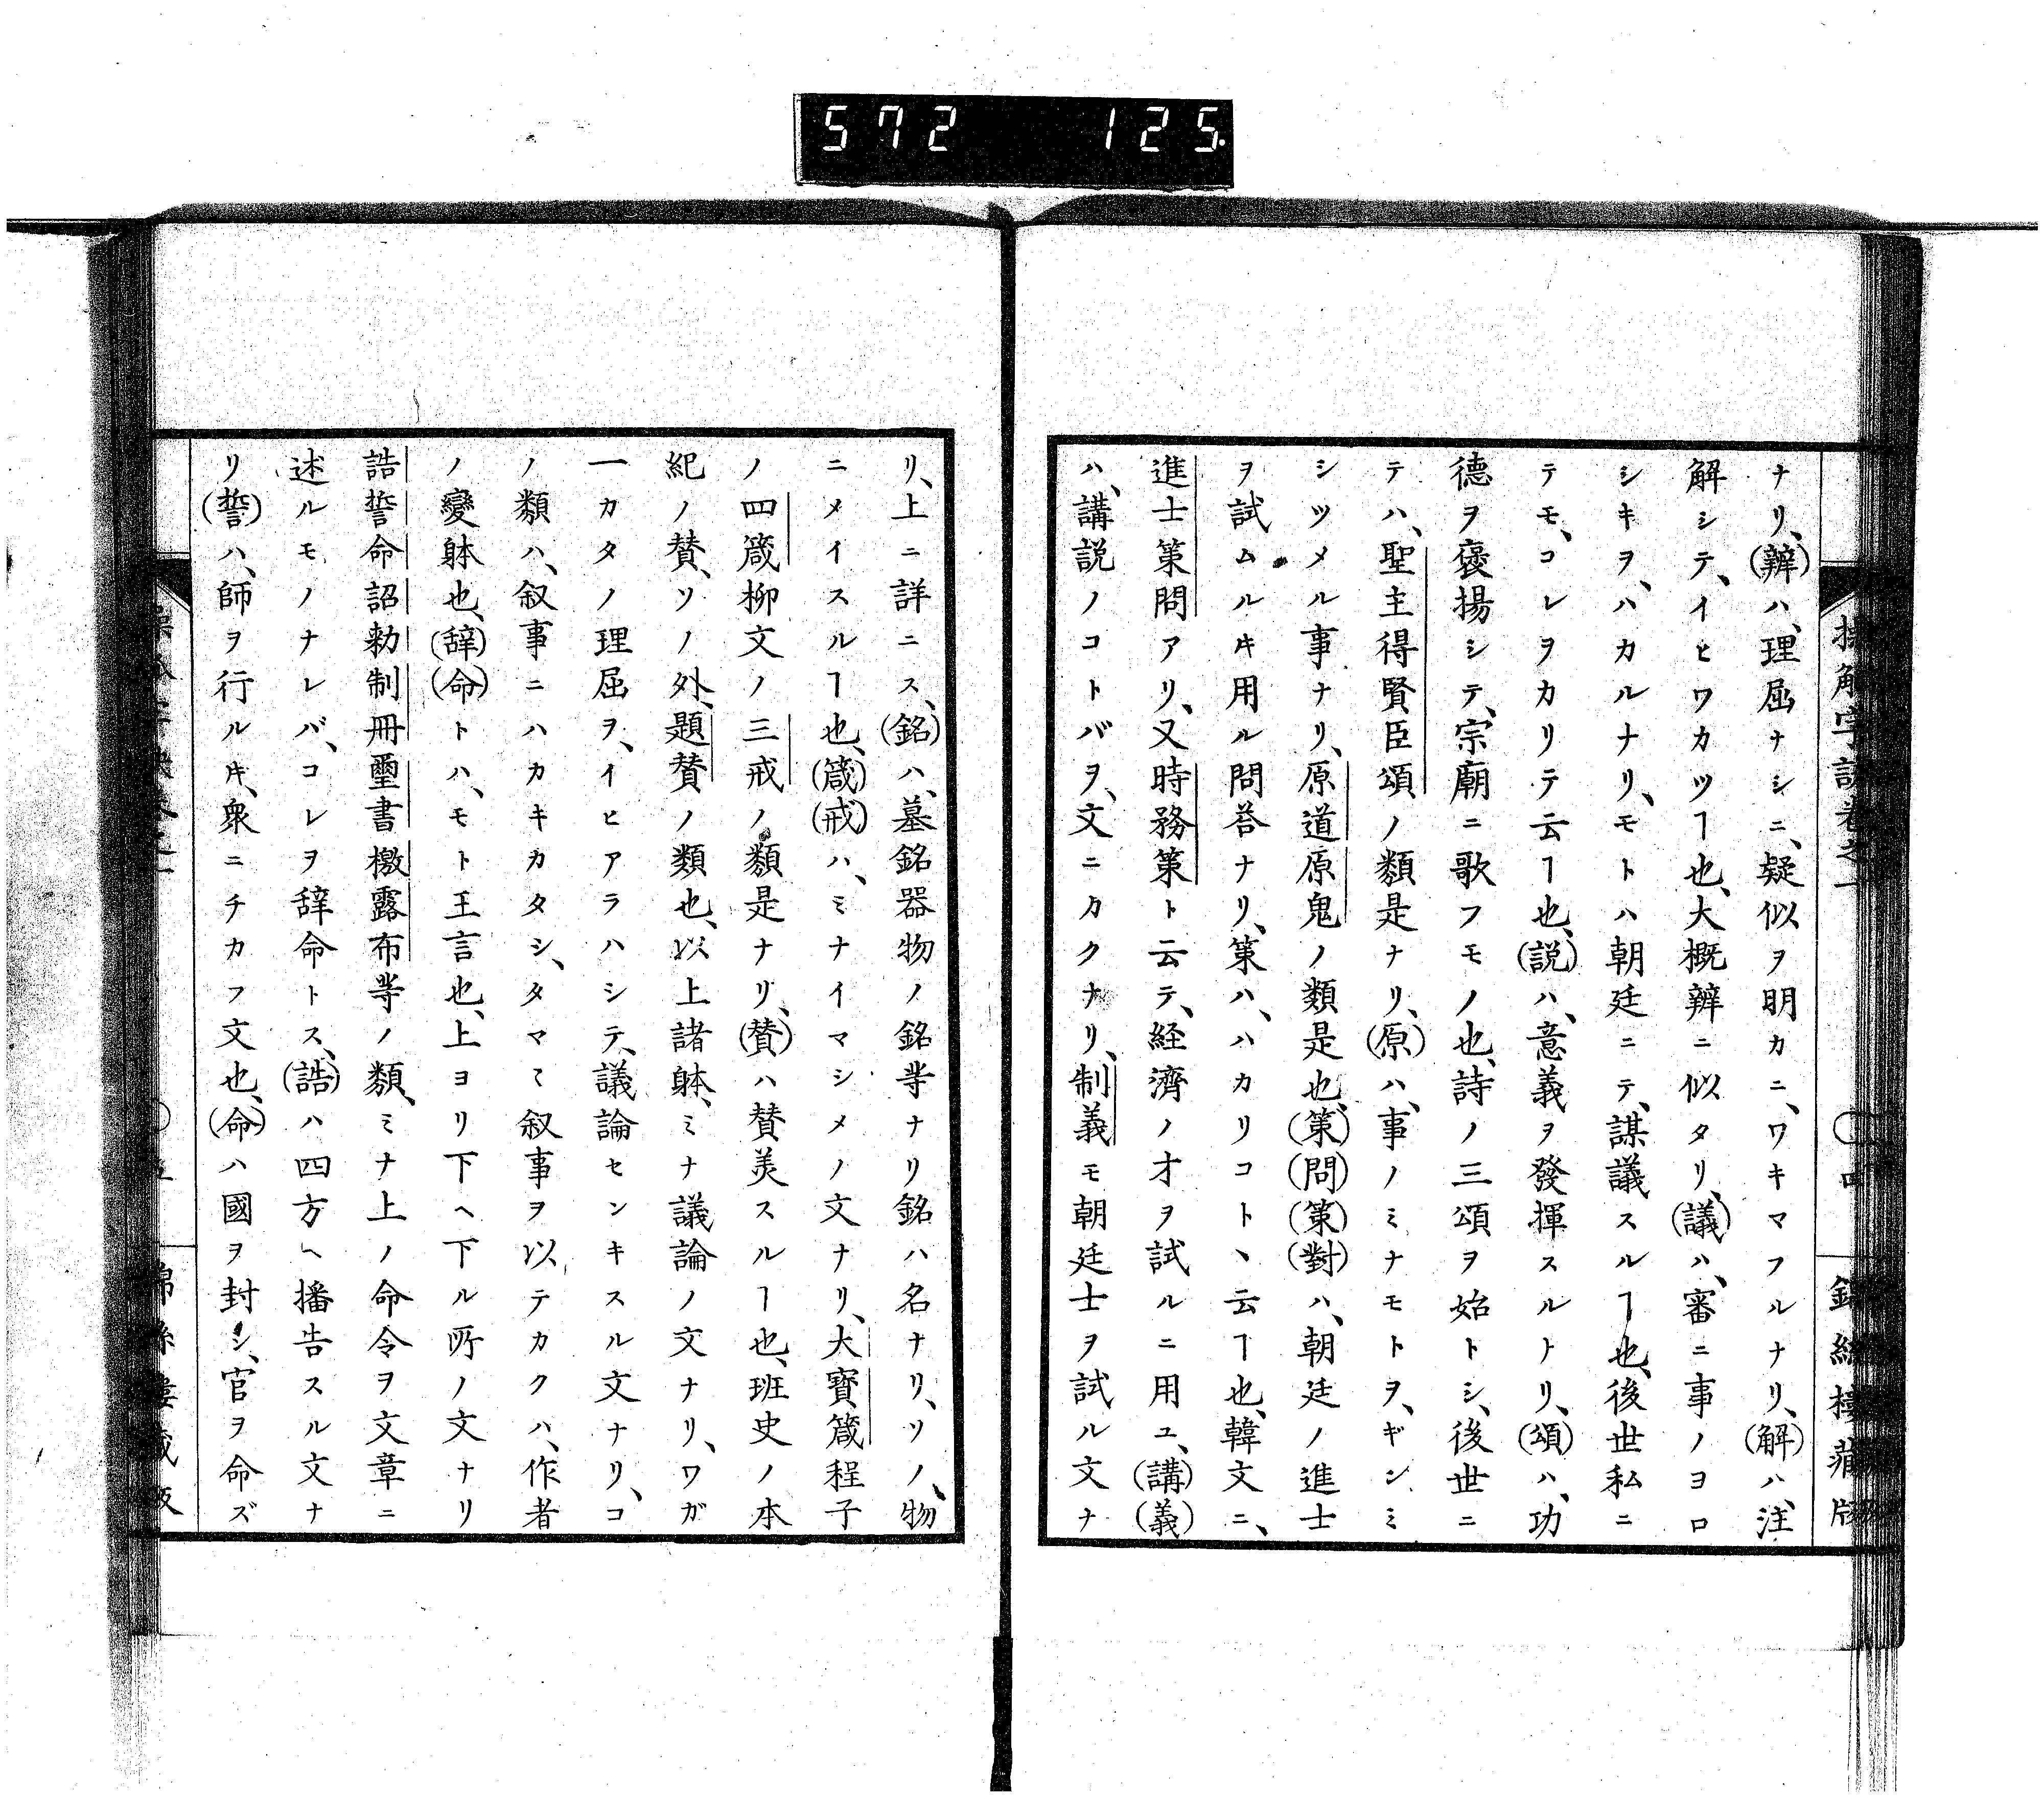 572 125
ナリ、(辨)ハ、理屈ナシニ、疑似ヲ明カニ、ワキマフルナリ、(解)ハ、注
解シテ、イヒワカツヿ也、大概辨ニ似タリ、(議)ハ、審ニ事ノヨロ
シキヲ、ハカルナリ、モトハ朝廷ニテ、謀議スルヿ也、後世私ニ
テモ、コレヲカリテ云ヿ也、(説)ハ、意義ヲ發揮スルトリ、(頌)ハ、功
德ヲ褒揚シテ、宗廟ニ歌フモノ也、詩ノ三頌ヲ始トシ、後世ニ
テハ、聖主得賢臣頌ノ類是ナリ、(原)ハ、事ノミナモトヲ、ギンミ
シツメル事ナリ、原道原鬼ノ類是也、(策)(問)(策)(對)ハ、朝廷ノ進士
ヲ試ムルキ用ル問荅ナリ、策ハ、ハカリコトヽ云ヿ也、韓文ニ、
進士策問アリ、又時務策ト云テ、経濟ノオヲ試ルニ用ユ、(講)(義)
ハ、講説ノコトバヲ、文ニカクナリ、制義モ朝廷士ヲ試ル文ナ
リ、上ニ詳ニス、(銘)ハ、墓銘器物ノ銘等ナリ銘ハ名ナリ、ソノ、物
ニメイスルヿ也、(箴)(戒)ハ、ミナイマシメノ文ナリ、大寶箴程子
ノ四箴柳文ノ三戒ノ類是ナリ、(賛)ハ賛美スルヿ也、班史ノ本
紀ノ賛、ソノ外、題賛ノ類也、以上諸躰、ミナ議論ノ文ナリ、ワガ
一カタノ理屈ヲ、イヒアラハシテ、議論センキスル文ナリ、コ
ノ類ハ、叙事ニハカキカタシ、タマ〻叙事ヲ以テカクハ、作者
ノ變躰也、(辞)(命)トハ、モト王言也、上ヨリ下ヘ下ル所ノ文ナリ
誥誓命詔勅制冊璽書檄露布等ノ類、ミナ上ノ命令ヲ文章ニ
述ルモノナレバ、コレヲ辞命トス、(誥)ハ四方ヘ播告スル文ナ
リ(誓)ハ、師ヲ行ルキ、衆ニチカフ文也、(命)ハ國ヲ封シ、官ヲ命ズ